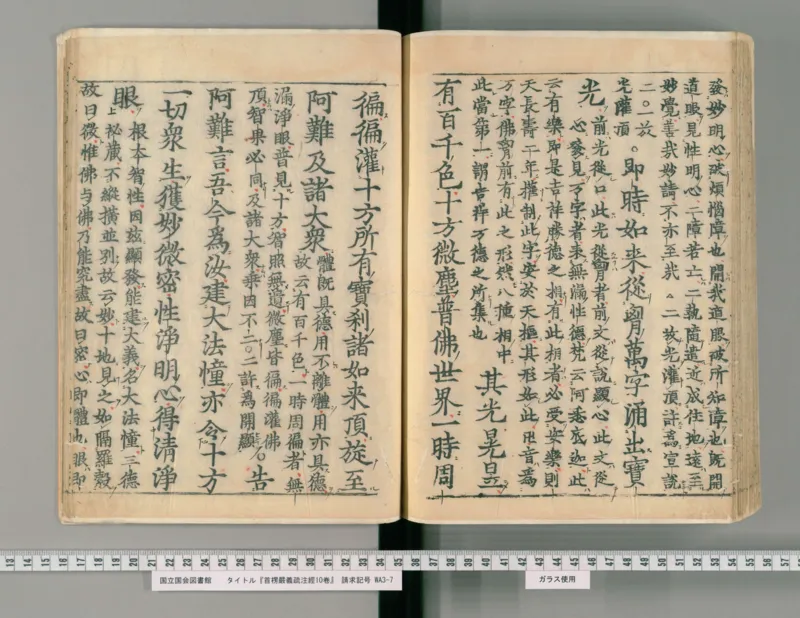 發妙明心破煩惱障也開我道眼破所知障也既開
道眼見性明心二障若亡二執隨遣近成住地遠至
妙覺善哉妙請不亦至哉。二放光灌頂許爲宣說
二。一放
光灌頂
。即時如來從胷萬字涌出寶
光
前光從口此光從胷者前文從說顯心此文從
心發見万字者表無漏性德梵云阿悉底迦此
云有樂即是吉祥勝德之相有此相者必受安樂則
天長壽二年權制此字安於天樞其形如此卍音爲
万字佛胷前有此之形八種相中
此當第一謂吉祥万德之所集也
其光晃昱
有百千色十方微塵普佛世界一時周
徧徧灌十方所有寶刹諸如來頂旋至
阿難及諸大衆
體既具德用不離體用亦具德
故云有百千色一時周徧者無
漏淨眼普見十方智照無遺微塵皆徧徧灌佛
頂智果必同及諸大衆乘因不二。二許爲開顯
。告
阿難言吾今爲汝建大法幢亦令十方
一切衆生獲妙微密性淨明心得清淨
眼
根本智性因玆顯發能建大義名大法幢三德
上祕藏不縱橫並別故云妙十地見之如隔羅縠
故曰微惟佛与佛乃能究盡故曰密心即體也眼即
国立国会図書館 タイトル『首楞嚴義疏注經10巻』 請求記号 WA3-7
ガラス使用